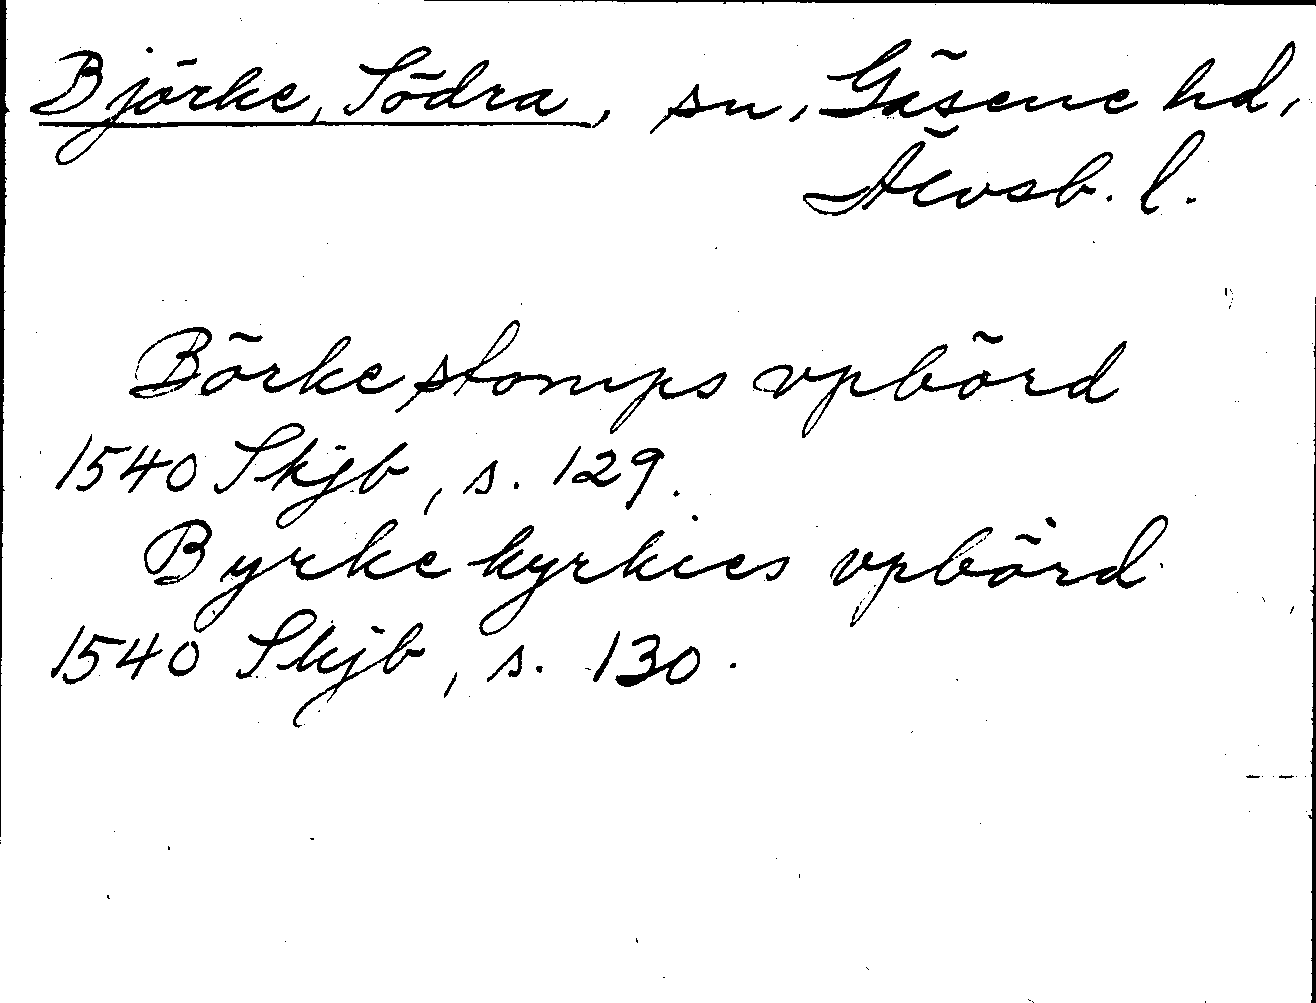 Björke, Södra, sn, Gäsene hd,
Älvsb. l.
Börke stomps vpbörd
1540 Skjb, s. 129.
Byrke kyrkies vpbörd
1540 Skjb, s. 130.